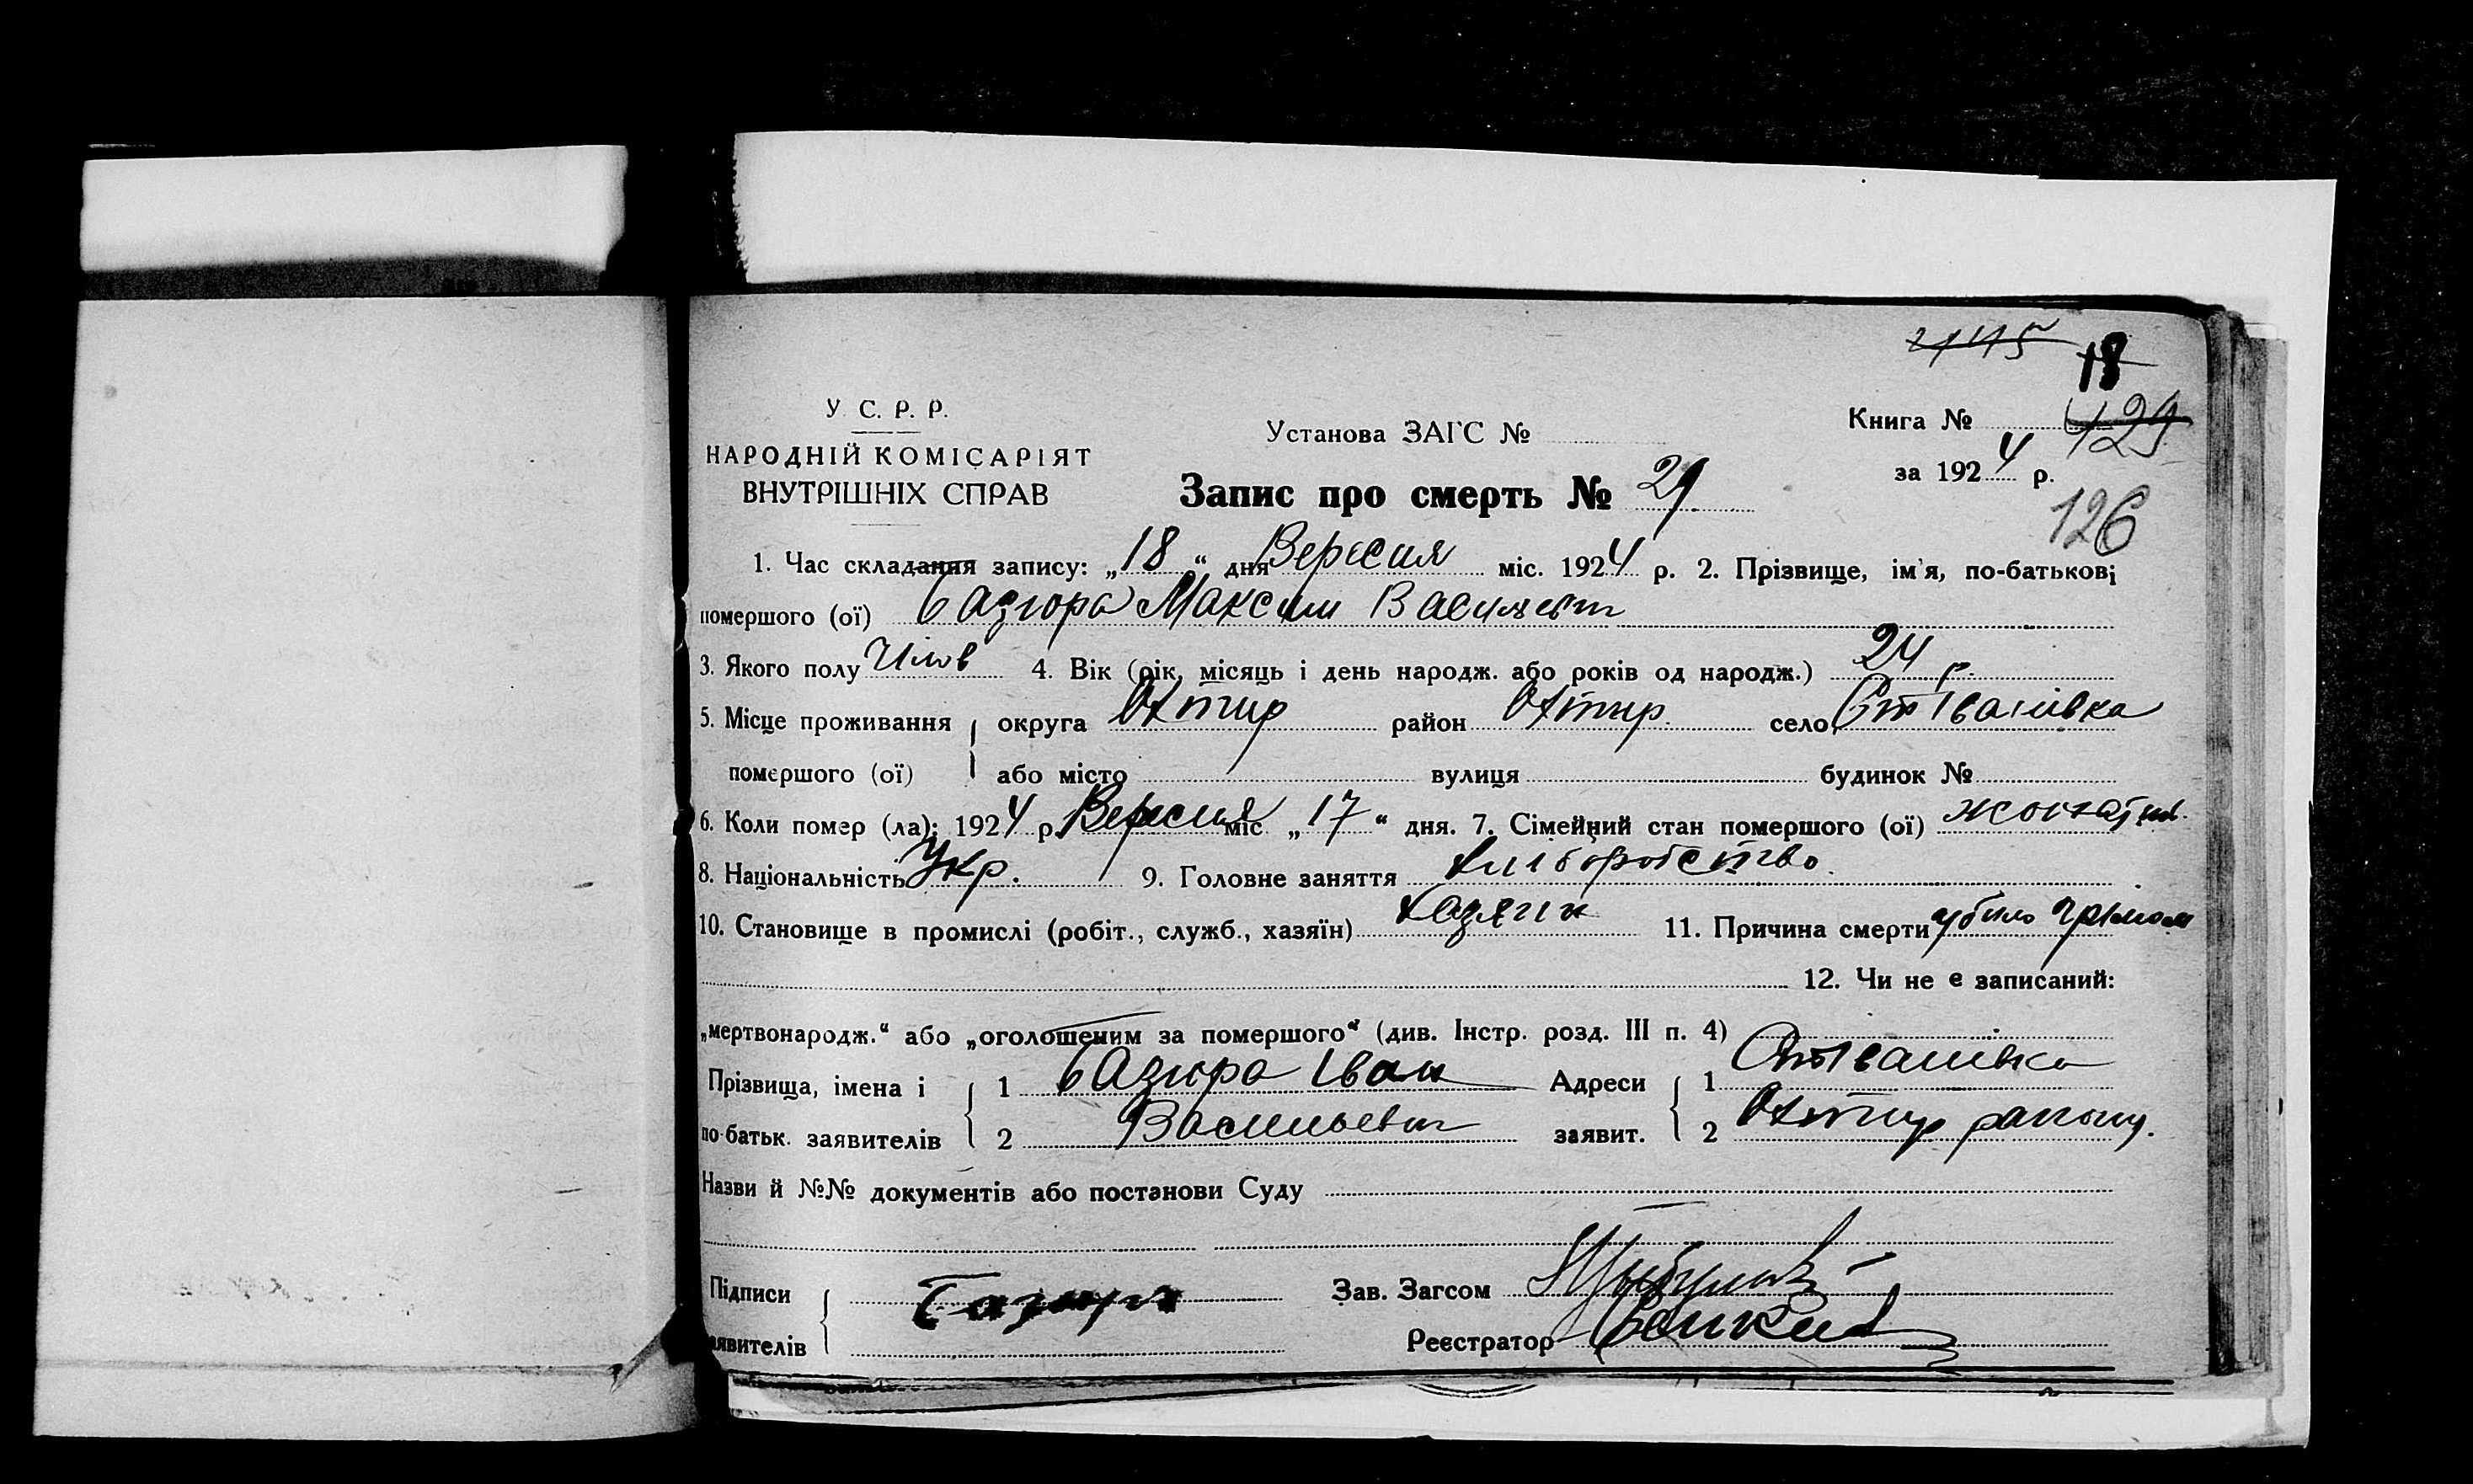 2145
18
У. С. Р. Р.
НАРОДНІЙ КОМІСАРІЯТ
ВНУТРІШНІХ СПРАВ
Установа ЗАГС №
Книга № 129
за 1924 р.
126
Запис про смерть № 29
1. Час складання запису: „18“ дня Вересня міс. 1924 р. 2. Прізвище, ім'я, по-батькові
помершого (ої) Базюра Максим Васильевич
3. Якого полу Чілов 4. Вік (рік, місяць і день народж. або років од народж.) 24 р.
5. Місце проживання округа Охтир район Охтир. село Ст Іванівка
помершого (ої) або місто вулиця будинок №
6. Коли помер (ла): 1924 р. Вересня міс „17“ дня. 7. Сімейний стан помершого (ої)
8. Національність Укр. 9. Головне заняття хліборобство.
10. Становище в промислі (робіт., служб., хазяїн) хазяін 11. Причина смерти убило громом
12. Чи не є записаний:
„мертвонародж.“ або „оголошеним за помершого“ (див. Інстр. розд. III п. 4)
Прізвища, імена і 1 Базюра Іван Адреси 1 Ст Іванівка
по-батьк. заявителів 2 Васильевич заявит. 2 Охтир району.
Назви й №№ документів або постанови Суду
Підписи Базюра Зав. Загсом
заявителів Реєстратор